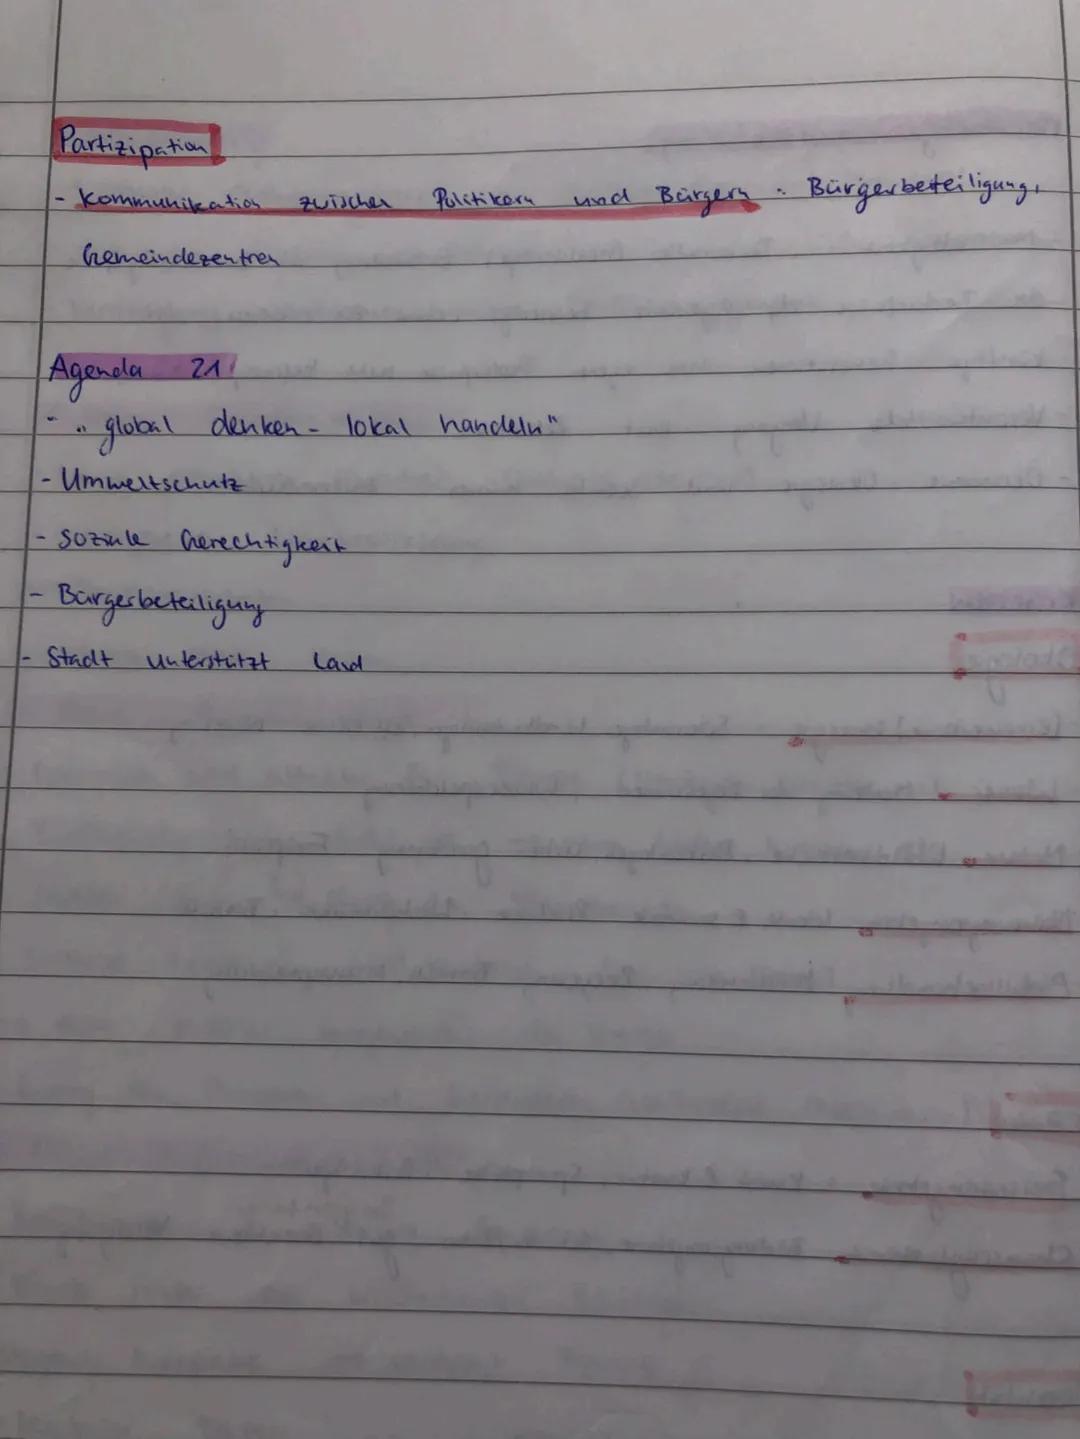 Partizipation
- Kommunikation zwischen Politikern und Bürgern: Bürgerbeteiligung,
Gemeindezentren
Agenda 21
- „global denken - lokal handeln"
- Umweltschutz
- Soziale Gerechtigkeit
- Bürgerbeteiligung
- Stadt unterstützt Land